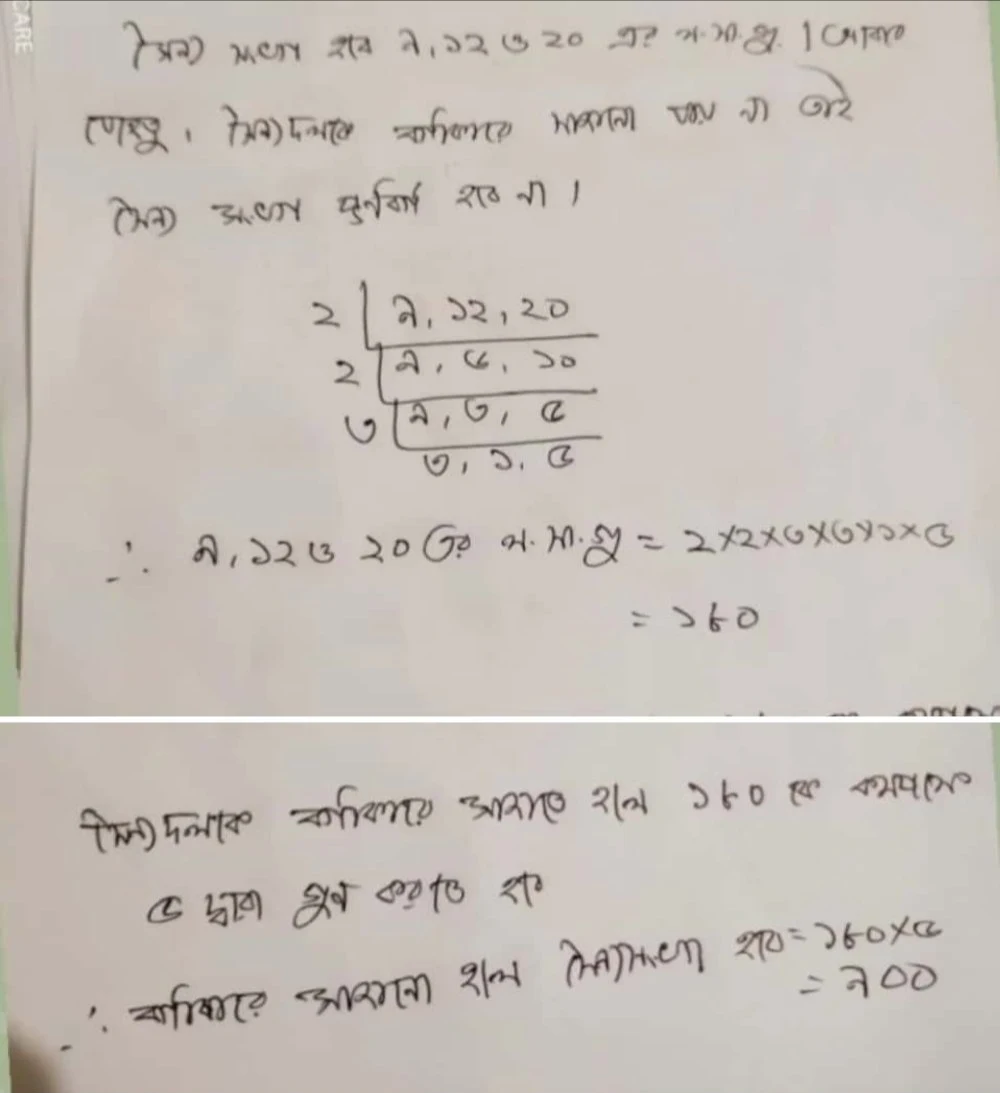 CARE
সৈন্য সংখ্যা হবে ৯, ১২ ও ২০ এর ল.সা.গু.।
সৈন্যদলকে বর্গাকারে সাজানো যায় না তাই
সৈন্য সংখ্যা পূর্ণবর্গ হবে না।
২ | ৯, ১২, ২০
২ | ৯, ৬, ১০
৩ | ৯, ৩, ৫
৩, ১, ৫
∴ ৯, ১২ ও ২০ এর ল.সা.গু = ২×২×৩×৩×১×৫
= ১৮০
সৈন্যদলকে বর্গাকারে সাজাতে হলে ১৮০ কে কমপক্ষে
৫ দ্বারা গুন করতে হবে
∴ বর্গাকারে সাজানো হলে সৈন্যসংখ্যা হবে = ১৮০×৫
= ৯০০